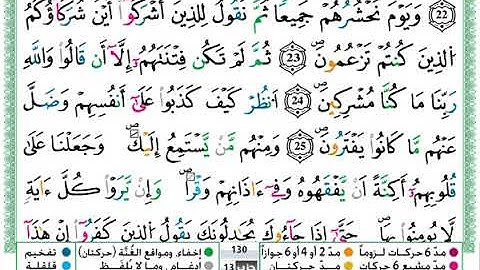 22 وَيَوْمَ نَحْشُرُهُمْ جَمِيعاً ثُمَّ نَقُولُ لِلَّذِينَ أَشْرَكُوٓا۟ أَيْنَ شُرَكَآؤُكُمُ
ا۬لذِينَ كُنتُمْ تَزْعُمُونَۖ 23 ثُمَّ لَمْ تَكُن فِتْنَتَهُمُۥٓ إِلَّآ أَن قَالُوا۟ وَاللَّهِ
رَبِّنَا مَا كُنَّا مُشْرِكِينَۖ 24 اَ۟نظُرْ كَيْفَ كَذَبُوا۟ عَلَىٰٓ أَنفُسِهِمْ وَضَلَّ
عَنْهُم مَّا كَانُوا۟ يَفْتَرُونَۖ 25 وَمِنْهُم مَّنْ يَّسْتَمِعُ إِلَيْكَۖ وَجَعَلْنَا عَلَىٰ
قُلُوبِهِمُۥٓ أَكِنَّةً أَنْ يَّفْقَهُوهُ وَفِےٓ ءَاذَانِهِمْ وَقْراًۖ وَإِنْ يَّرَوْا۟ كُلَّ ءَايَةٍ
لَّا يُومِنُوا۟ بِهَاۖ حَتَّىٰٓ إِذَا جَآءُوكَ يُجَٰدِلُونَكَ يَقُولُ الذِينَ كَفَرُوٓا۟ إِنْ هَٰذَآ
مدّ 6 حركات لزوماً مدّ 2 أو 4 أو 6 جوازاً 130 إخفاء، ومواقع الغُنَّة (حركتان) تفخيم
مدّ مشبع 6 حركات مدّ حركتان إدغام، وما لا يُلفَظ قلقلة